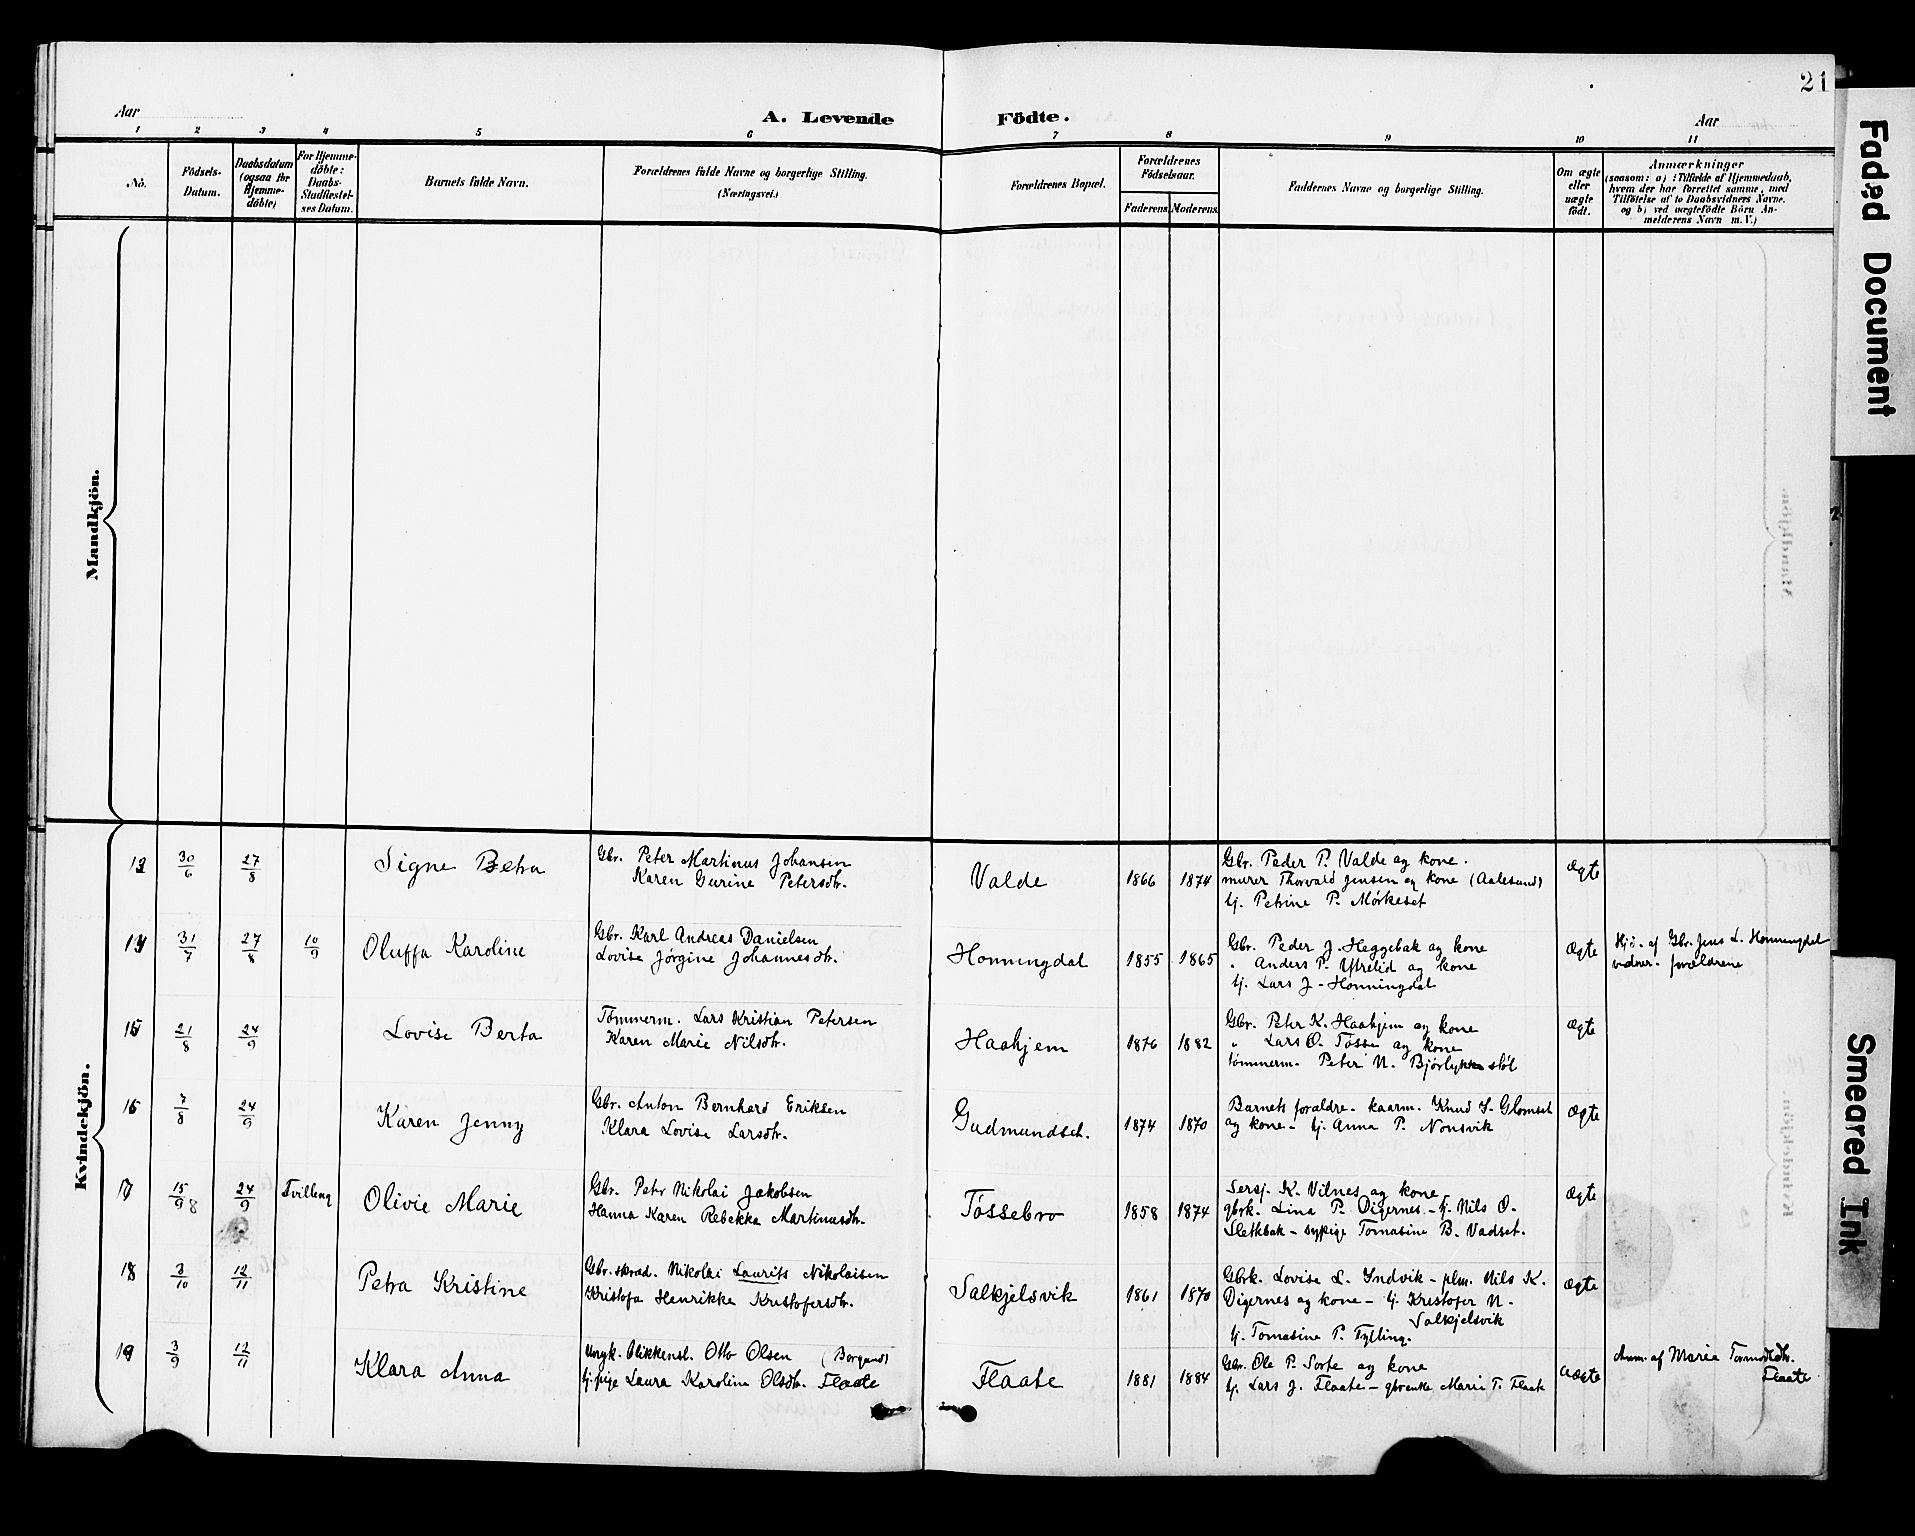 21
Aar
A. Levende Födte.
Aar
1 2 3 4 5 6 7 8 9 10 11
No.
Födsels-
Datum.
Daabsdatum
(ogsaa for
Hjemme-
döbte)
For Hjemme-
döbte:
Daabs-
Stadfæstel-
ses Datum.
Barnets fulde Navn.
Forældrenes fulde Navne og borgerlige Stilling.
(Næringsvei.)
Forældrenes Bopæl.
Forældrenes
Födselsaar.
Faderens. Moderens.
Faddernes Navne og borgerlige Stilling.
Om ægte
eller
uægte
födt.
Anmærkninger
(saasom: a) i Tilfælde af Hjemmedaab,
hvem der har forrettet samme, med
Tilföielse af to Daabsvidners Navne,
og b) ved uægtefödte Börn An-
melderens Navn m. V.)
Mandkjön.
Kvindekjön.
13 30/6 27/8
Signe Betra
Gbr. Peter Martinus Johansen
Karen Gurine Petersdtr.
Valde
1866 1874
Gbr. Peder P. Valde og kone.
murer Thorvald Jensen og kone (Aalesund)
tj. Petrine P. Mørkeset
Ægte
14 31/7 27/8 10/9
Oluffa Karoline
Gbr. Karl Andreas Danielsen
Lovise Jørgine Johannesdtr.
Honningdal
1855 1865
Gbr. Peder J. Heggebak og kone
" Anders P. Ytrelid og kone
tj. Lars J. Honningdal
Ægte
Hjd. af Gbr. Jens L. Honningdal
vidner. forældrene
15 21/8 24/9
Lovise Berta
Tømmerm. Lars Kristian Petersen
Karen Marie Nilsdtr.
Haahjem
1876 1882
Gbr. Peter K. Haahjem og kone
" Lars O. Tøsse og kone
tømmerm. Peter N. Bjørlykkestøl
Ægte
16 7/8 24/9
Karen Jenny
Gbr. Anton Bernhard Eriksen
Klara Lovise Larsdtr.
Gudmundset.
1874 1870
Barnets forældre - kaarm. Knud S. Glomset
og kone - tj. Anna P. Nonsvik
Ægte
17 15/9 8 24/9 Tvilling
Olivie Marie
Gbr. Petr Nikolai Jakobsen
Hanna Karen Rebekka Martinusdtr.
Tøssebro
1858 1874
Sersj. K. Vilnes og kone
gbrk. Lina P. Digernes - tj. Nils O.
Sletbak - sypige Tomasine B. Vadset.
Ægte
18 3/10 12/11
Petra Kristine
Gbr. skræd. Nikolai Laurits Nikolaisen
Kristofa Henrikke Kristofersdtr.
Valkjelsvik
1861 1870
Gbrk. Lovise L. Indvik - plm. Nils K.
Digernes og kone - tj. Kristofer N.
Valkjelsvik
tj. Tomasine P. Tylling.
Ægte
19 3/9 12/11
Klara Anna
Ungk. Blikkensl. Otto Olsen (Borgund)
tj. pige Laura Karoline Olsdtr. Flaate
Flaate
1881 1884
Gbr. Ole P. Sorte og kone
tj. Lars J. Flaate - gbrenke Marie T. Flaate
Uægte
Anm. af Marie Tormodsdtr.
Flaate
Faded Document
Smeared Ink